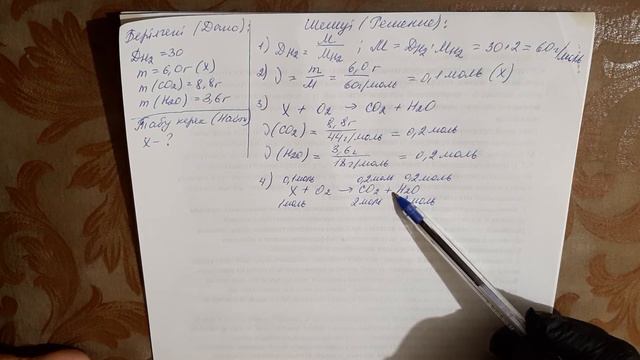 Берілгені (Дано):
D H₂ = 30
m = 6,0г (X)
m (CO₂) = 8,8г
m (H₂O) = 3,6г
Табу керек (Найти)
X - ?
Шешуі (Решение):
1) D H₂ = M / M H₂ ; M = D H₂ · M H₂ = 30 · 2 = 60г/моль
2) ν = m / M = 6,0г / 60г/моль = 0,1 моль (X)
3) X + O₂ → CO₂ + H₂O
ν (CO₂) = 8,8г / 44г/моль = 0,2 моль
ν (H₂O) = 3,6г / 18г/моль = 0,2 моль
4) 0,1моль 0,2моль 0,2моль
X + O₂ → CO₂ + H₂O
1моль 2моль моль